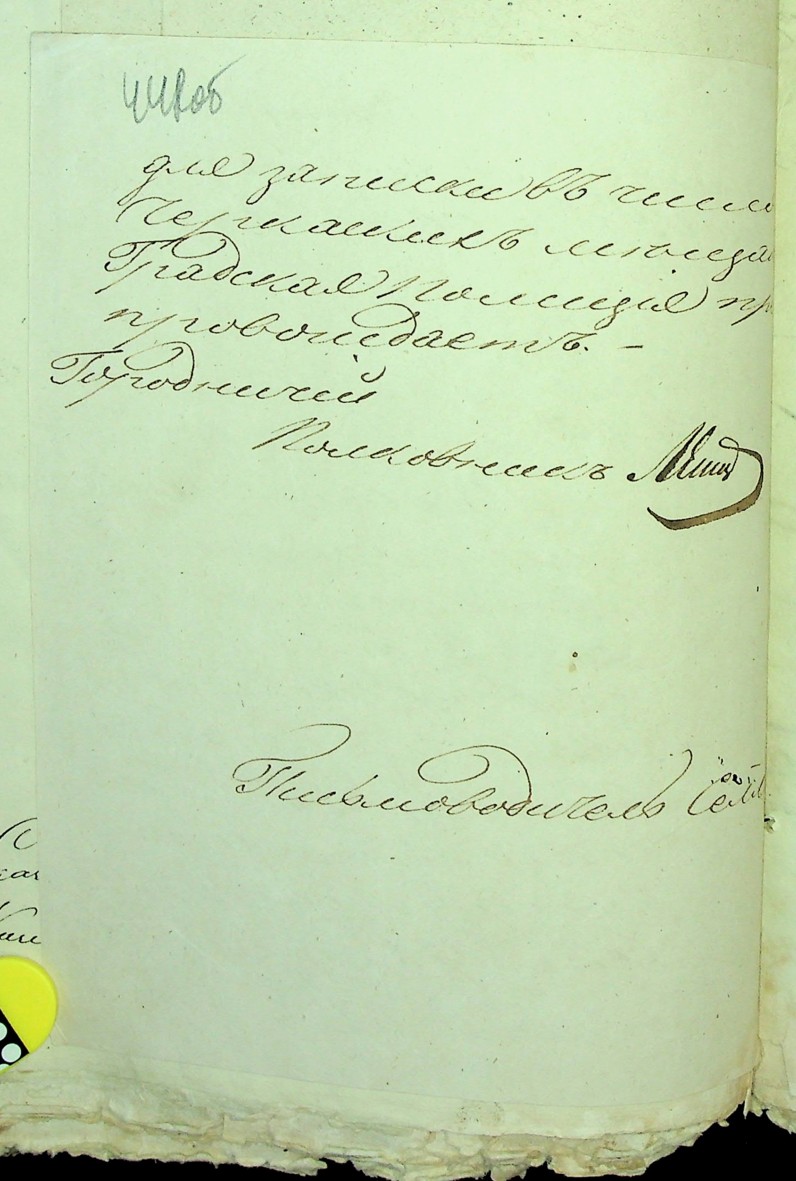 448 об
для записки въ числ
Черкаскихъ мѣща
Градская Полиція пр
провождаетъ. –
Городничій
Полковникъ
Письмоводитель